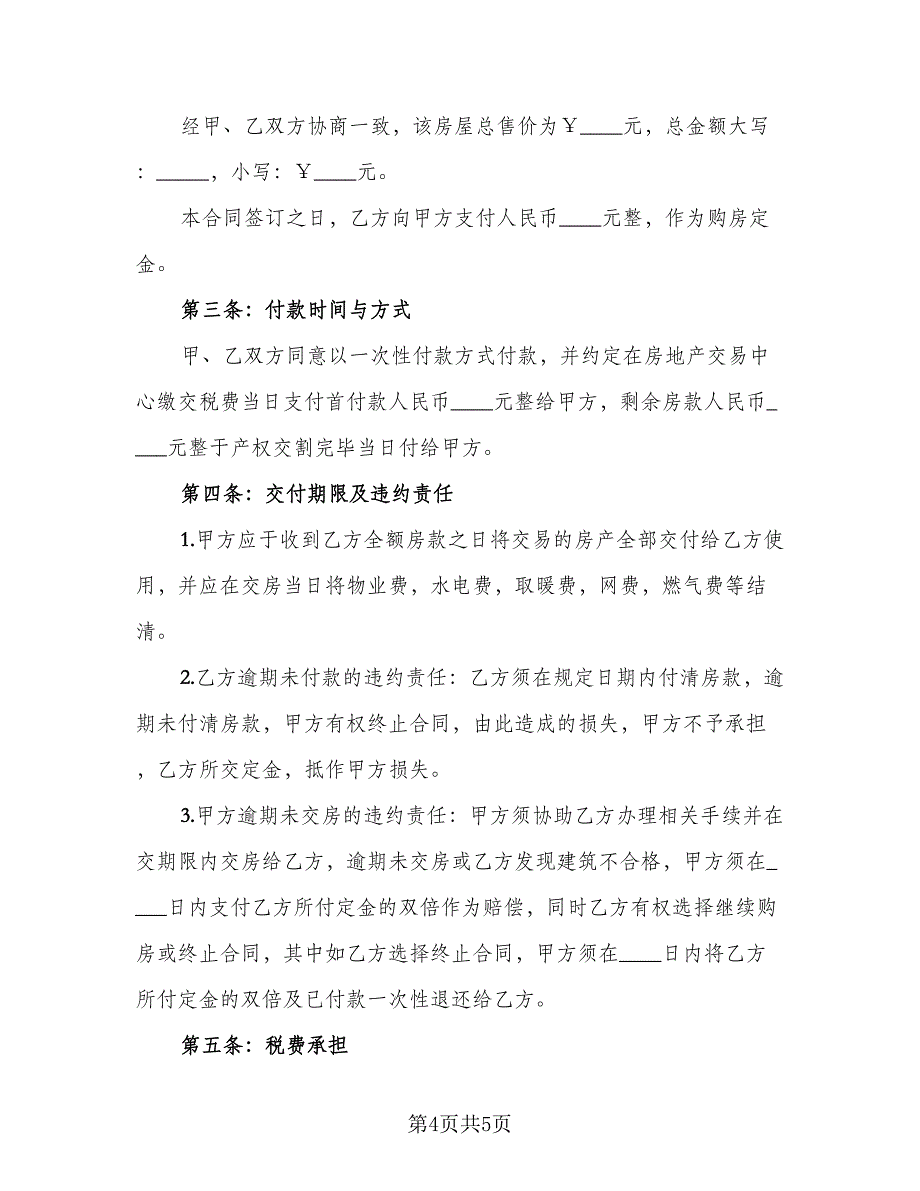 经甲、乙双方协商一致，该房屋总售价为￥____元，总金额大写
：_____，小写：￥____元。
本合同签订之日，乙方向甲方支付人民币____元整，作为购房定
金。
第三条：付款时间与方式
甲、乙双方同意以一次性付款方式付款，并约定在房地产交易中
心缴交税费当日支付首付款人民币____元整给甲方，剩余房款人民币_
___元整于产权交割完毕当日付给甲方。
第四条：交付期限及违约责任
1.甲方应于收到乙方全额房款之日将交易的房产全部交付给乙方使
用，并应在交房当日将物业费，水电费，取暖费，网费，燃气费等结
清。
2.乙方逾期未付款的违约责任：乙方须在规定日期内付清房款，逾
期未付清房款，甲方有权终止合同，由此造成的损失，甲方不予承担
，乙方所交定金，抵作甲方损失。
3.甲方逾期未交房的违约责任：甲方须协助乙方办理相关手续并在
交期限内交房给乙方，逾期未交房或乙方发现建筑不合格，甲方须在_
___日内支付乙方所付定金的双倍作为赔偿，同时乙方有权选择继续购
房或终止合同，其中如乙方选择终止合同，甲方须在____日内将乙方
所付定金的双倍及已付款一次性退还给乙方。
第五条：税费承担
第4页共5页